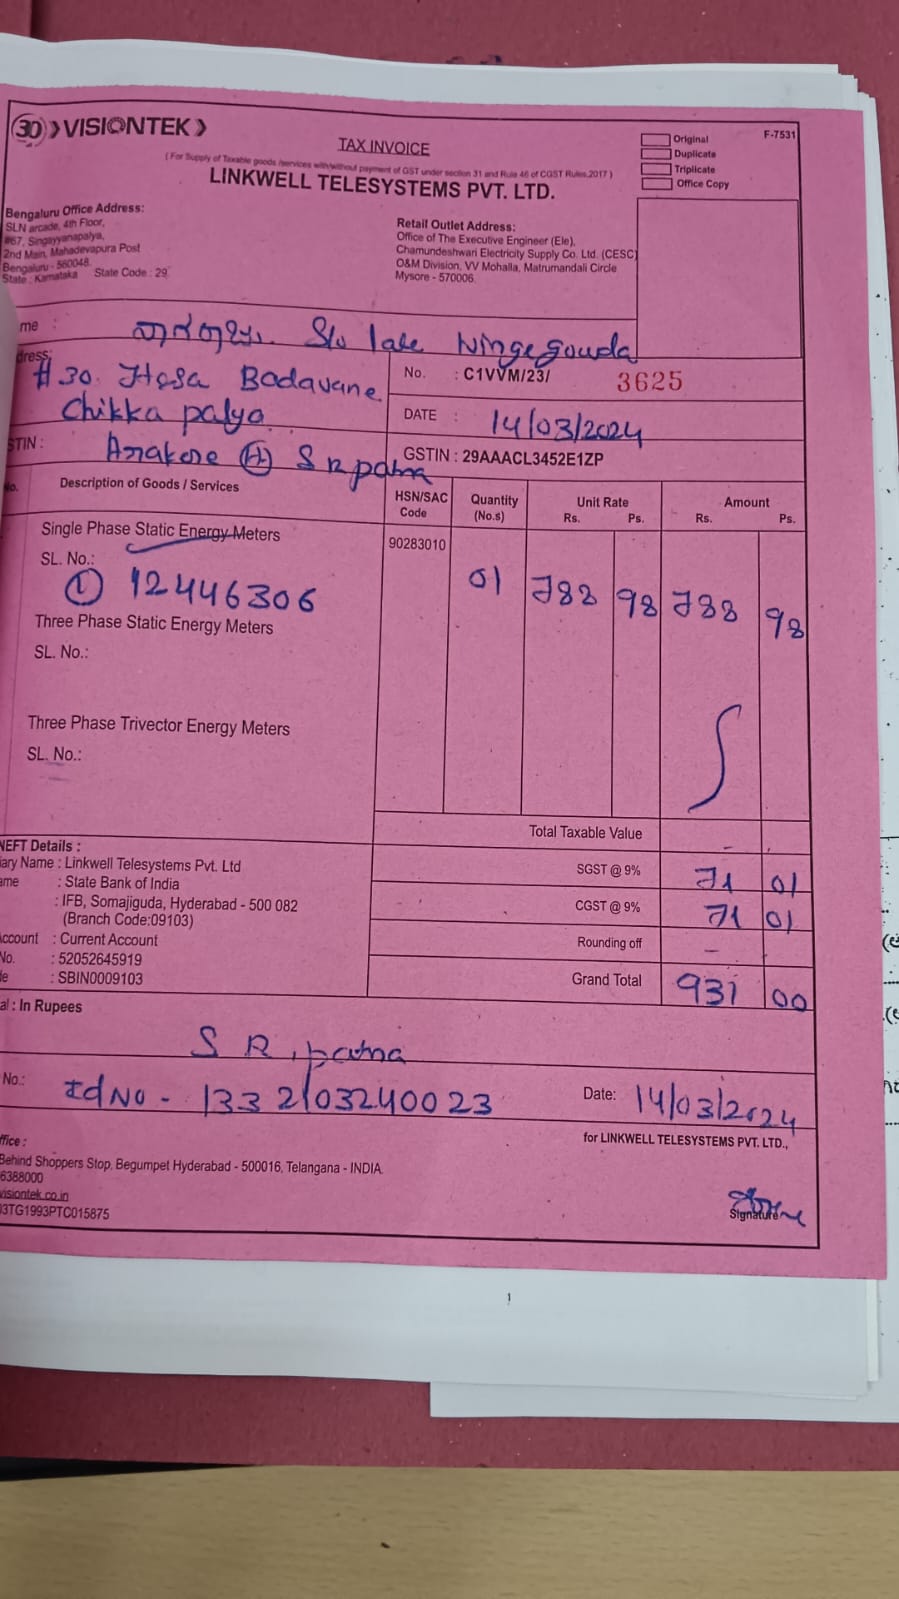 30 VISIONTEK
TAX INVOICE
(For Supply of Taxable goods /services with/without payment of GST under section 31 and Rule 46 of CGST Rules,2017 )
LINKWELL TELESYSTEMS PVT. LTD.
Original
Duplicate
Triplicate
Office Copy
F-7531
Bengaluru Office Address:
SLN arcade, 4th Floor,
#67, Singayyanapalya,
2nd Main, Mahadevapura Post
Bengaluru - 560048.
State : Karnataka State Code : 29
Retail Outlet Address:
Office of The Executive Engineer (Ele),
Chamundeshwari Electricity Supply Co. Ltd. (CESC)
O&M Division, VV Mohalla, Matrumandali Circle
Mysore - 570006.
me : S/o late Ningegouda
dress: #30. Hosa Badavane
Chikka palya
STIN : (H) S R patna
No. : C1VVM/23/ 3625
DATE : 14/03/2024
GSTIN : 29AAACL3452E1ZP
No. Description of Goods / Services HSN/SAC Code Quantity (No.s) Unit Rate Rs. Ps. Amount Rs. Ps.
Single Phase Static Energy Meters 90283010
SL. No.:
① 12446306 01 788 98 788 98
Three Phase Static Energy Meters
SL. No.:
Three Phase Trivector Energy Meters
SL. No.:
Total Taxable Value -
SGST @ 9% 71 01
CGST @ 9% 71 01
Rounding off -
Grand Total 931 00
NEFT Details :
iary Name : Linkwell Telesystems Pvt. Ltd
ame : State Bank of India
: IFB, Somajiguda, Hyderabad - 500 082
(Branch Code:09103)
ccount : Current Account
No. : 52052645919
de : SBIN0009103
al : In Rupees
S R patna
No.: Id No - 1332103240023
Date: 14/03/2024
for LINKWELL TELESYSTEMS PVT. LTD.,
ffice :
Behind Shoppers Stop, Begumpet Hyderabad - 500016, Telangana - INDIA.
6388000
visiontek.co.in
03TG1993PTC015875
Signature